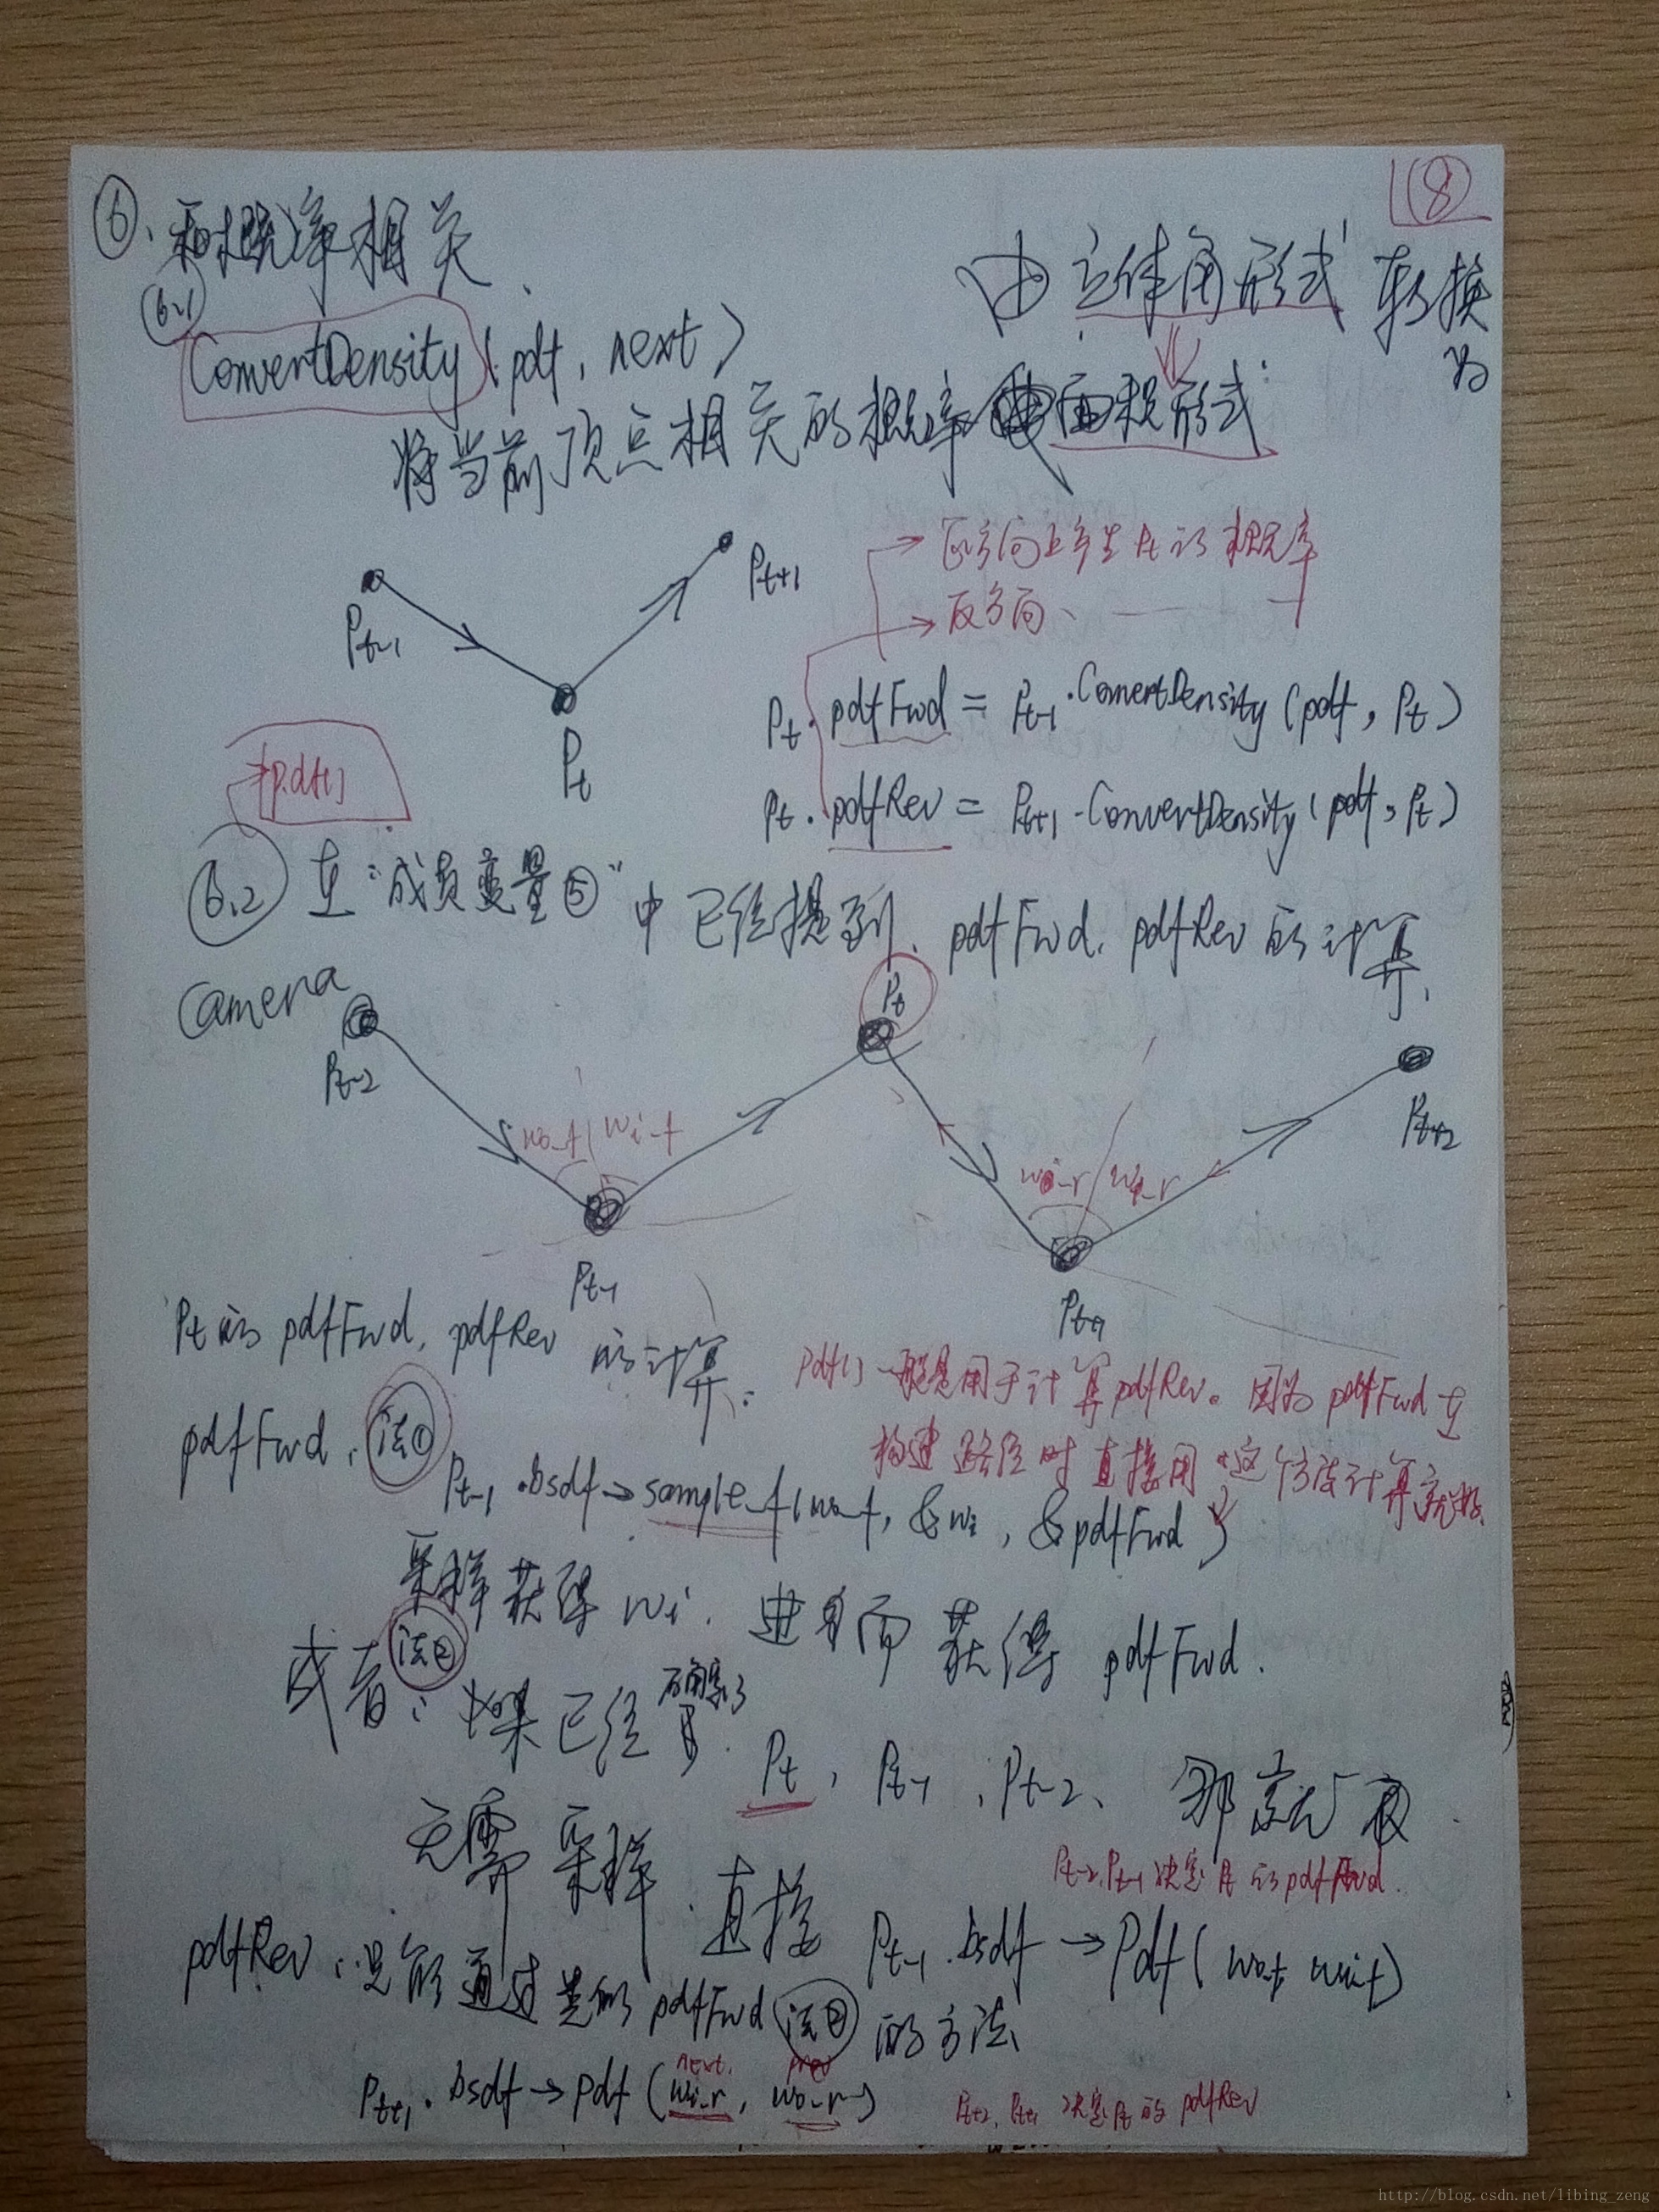 ⑧
⑥、和概率相关、
由立体角形式转换
为
6.1
ConvertDensity(pdf, next)
将当前顶点相关的概率 面积形式
Pt-1
Pt+1
Pt
方向上产生Pt的概率
反方向、
Pt.pdfFwd = Pt-1.ConvertDensity(pdf, Pt)
Pt.pdfRev = Pt+1.ConvertDensity(pdf, Pt)
pdf()
6.2 在“成员变量⑤”中已经提到、pdfFwd, pdfRev的计算、
Camera
Pt
Pt-2
Pt+2
wo-f wi-f
wi-r
Pt-1
Pt+1
Pt的pdfFwd, pdfRev的计算:
pdf()一般是用于计算pdfRev。因为pdfFwd在
构建路径时直接用这个方法计算就好
pdfFwd: 法①
Pt-1.bsdf→sample_f(wo-f, &wi, &pdfFwd)
采样获得wi. 进而获得pdfFwd.
或者: 法②
如果已经确定了
Pt, Pt-1, Pt-2、那就
无需采样、直接Pt-1.bsdf→Pdf(wo-f, wi-f)
Pt-2, Pt-1决定Pt的pdfFwd.
pdfRev: 只能通过类似pdfFwd法②的方法
next prev
Pt+1.bsdf→pdf(wi-r, wo-r)
Pt+2, Pt+1决定Pt的pdfRev
http://blog.csdn.net/libing_zeng